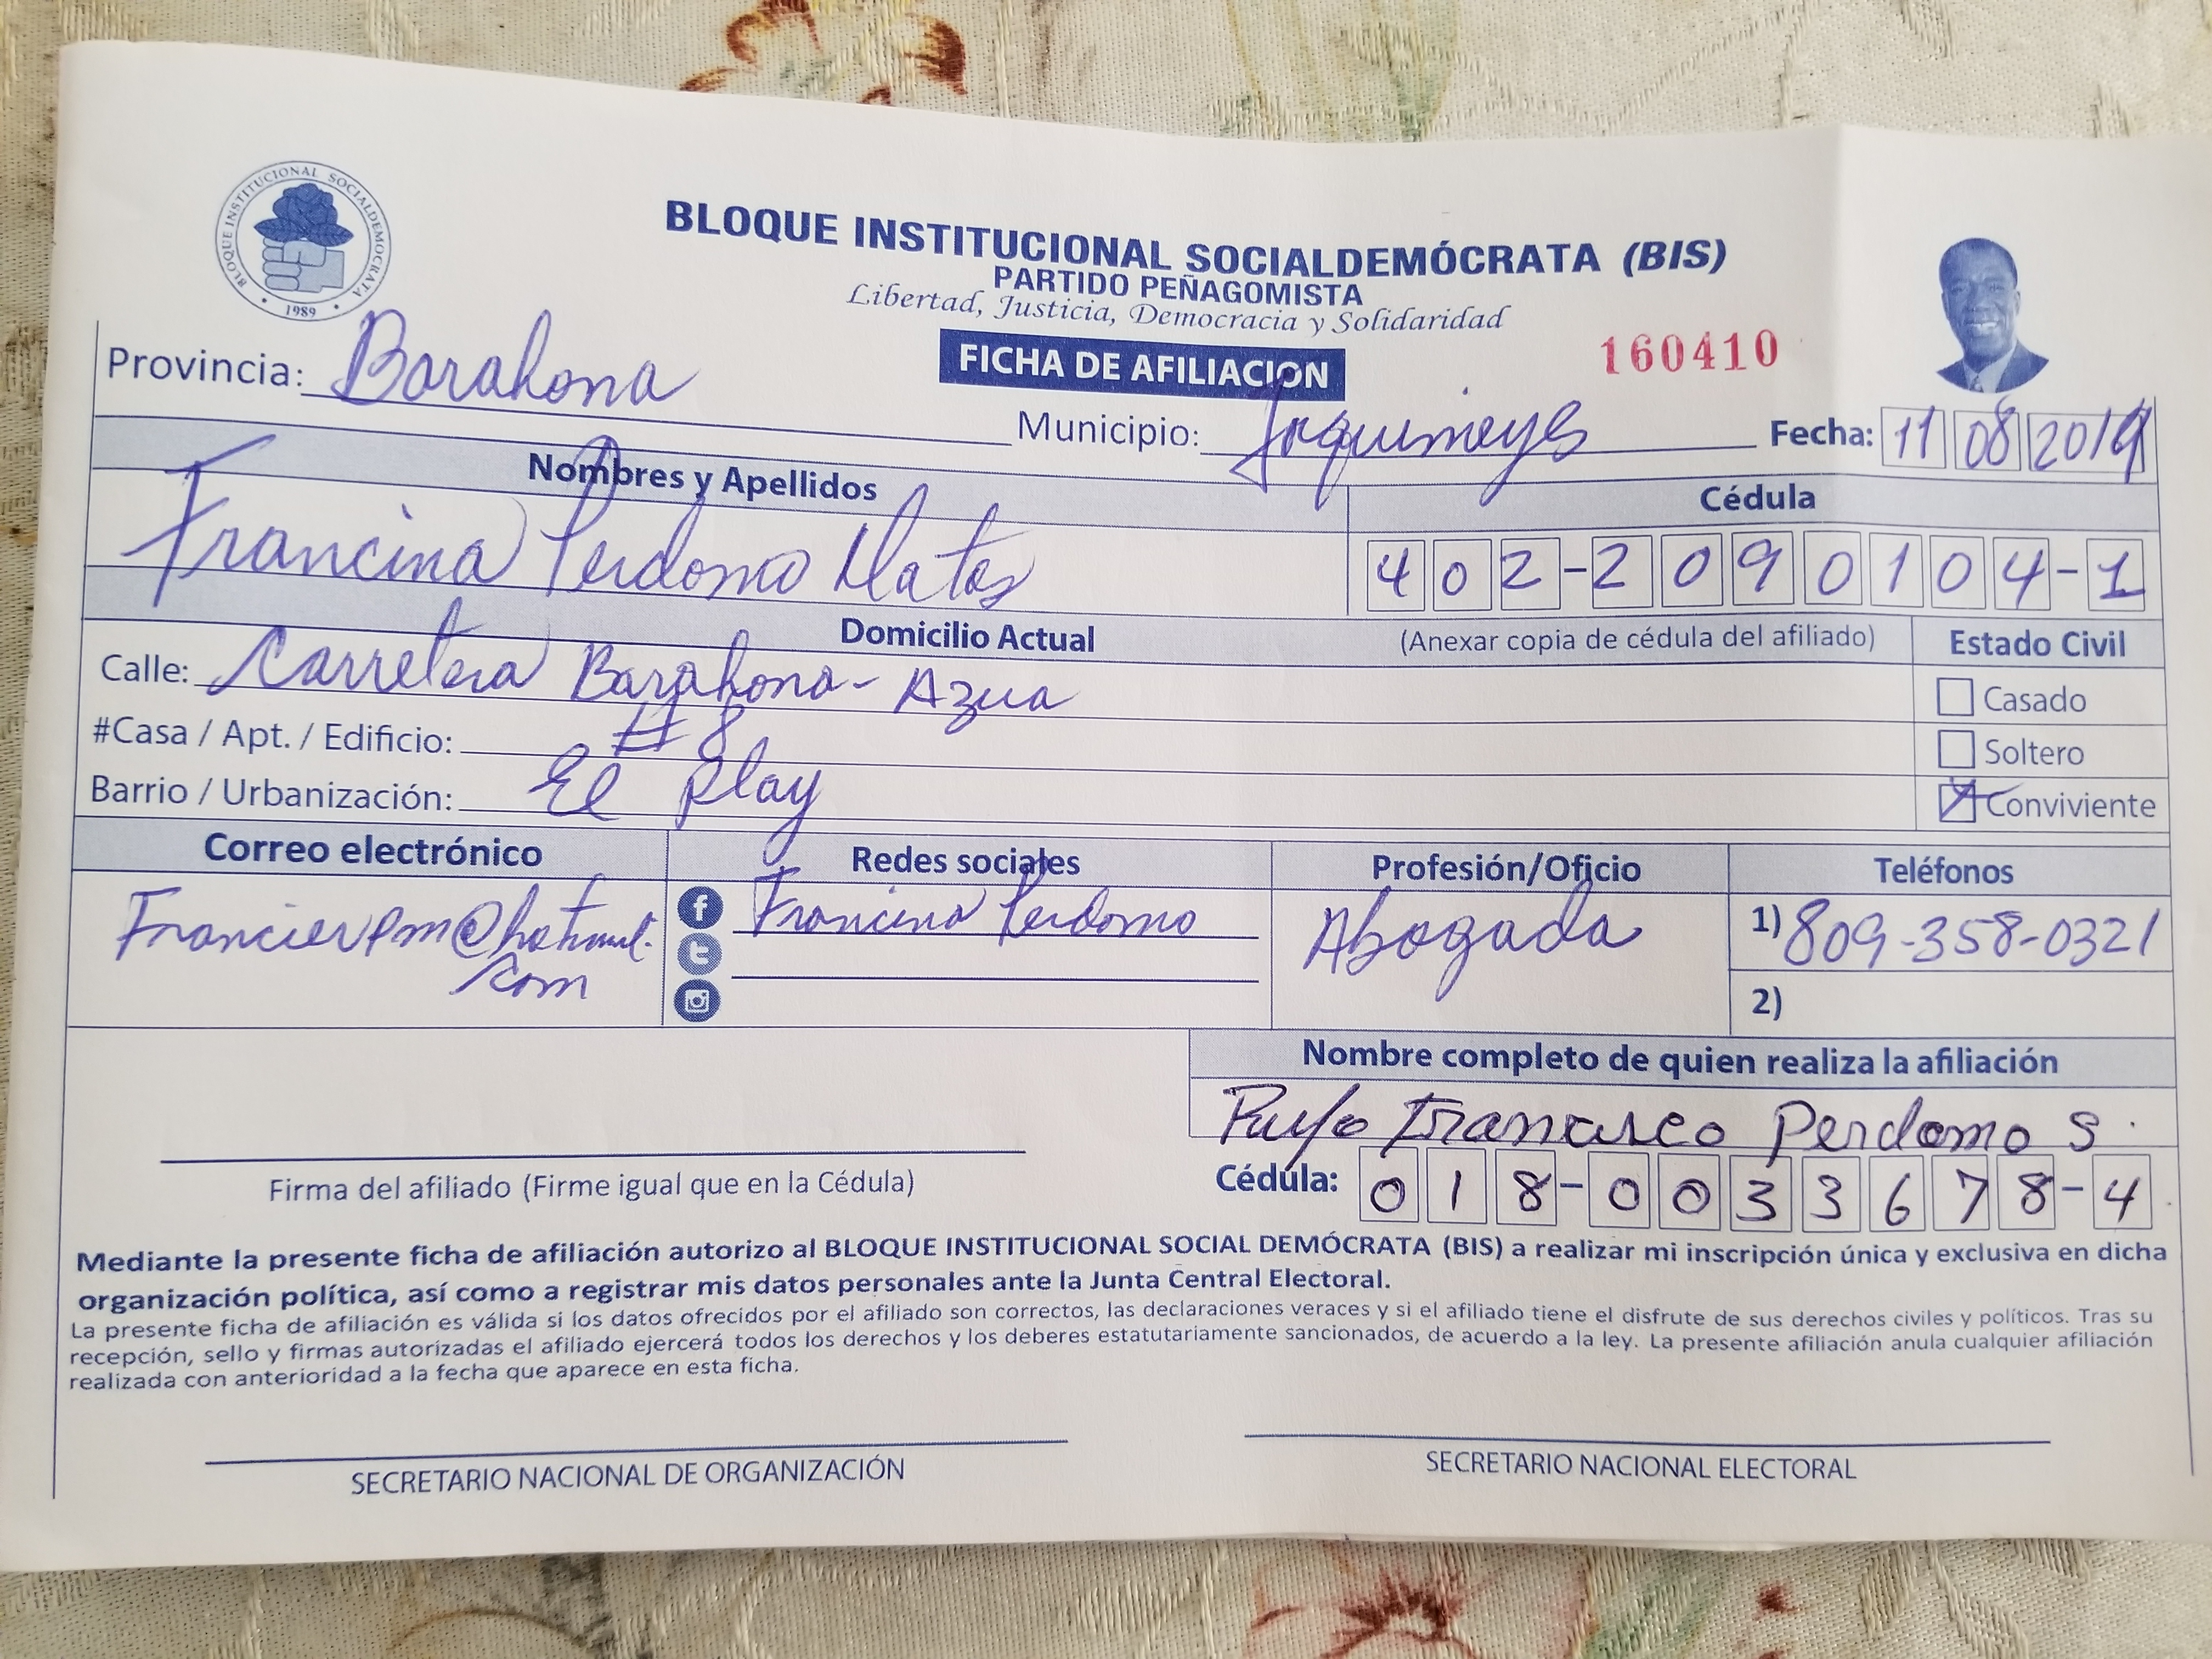 BLOQUE INSTITUCIONAL SOCIALDEMOCRATA
1989
BLOQUE INSTITUCIONAL SOCIALDEMÓCRATA (BIS)
PARTIDO PEÑAGOMISTA
Libertad, Justicia, Democracia y Solidaridad
FICHA DE AFILIACION
160410
Provincia: Barahona
Municipio: Jaquimeyes Fecha: 11 08 2019
Nombres y Apellidos
Cédula
Francina Perdomo Matos
402-2090104-1
Domicilio Actual (Anexar copia de cédula del afiliado)
Estado Civil
Calle: Carretera Barahona- Azua
Casado
#Casa / Apt. / Edificio: # 8
Soltero
Barrio / Urbanización: El Play
Conviviente
Correo electrónico
Redes sociales
Profesión/Oficio
Teléfonos
Francierpm@hotmail.
com
Francina Perdomo
Abogada
1) 809-358-0321
2)
Nombre completo de quien realiza la afiliación
Rufo Francisco Perdomo S.
Cédula: 018-0033678-4
Firma del afiliado (Firme igual que en la Cédula)
Mediante la presente ficha de afiliación autorizo al BLOQUE INSTITUCIONAL SOCIAL DEMÓCRATA (BIS) a realizar mi inscripción única y exclusiva en dicha
organización política, así como a registrar mis datos personales ante la Junta Central Electoral.
La presente ficha de afiliación es válida si los datos ofrecidos por el afiliado son correctos, las declaraciones veraces y si el afiliado tiene el disfrute de sus derechos civiles y políticos. Tras su
recepción, sello y firmas autorizadas el afiliado ejercerá todos los derechos y los deberes estatutariamente sancionados, de acuerdo a la ley. La presente afiliación anula cualquier afiliación
realizada con anterioridad a la fecha que aparece en esta ficha.
SECRETARIO NACIONAL DE ORGANIZACIÓN
SECRETARIO NACIONAL ELECTORAL